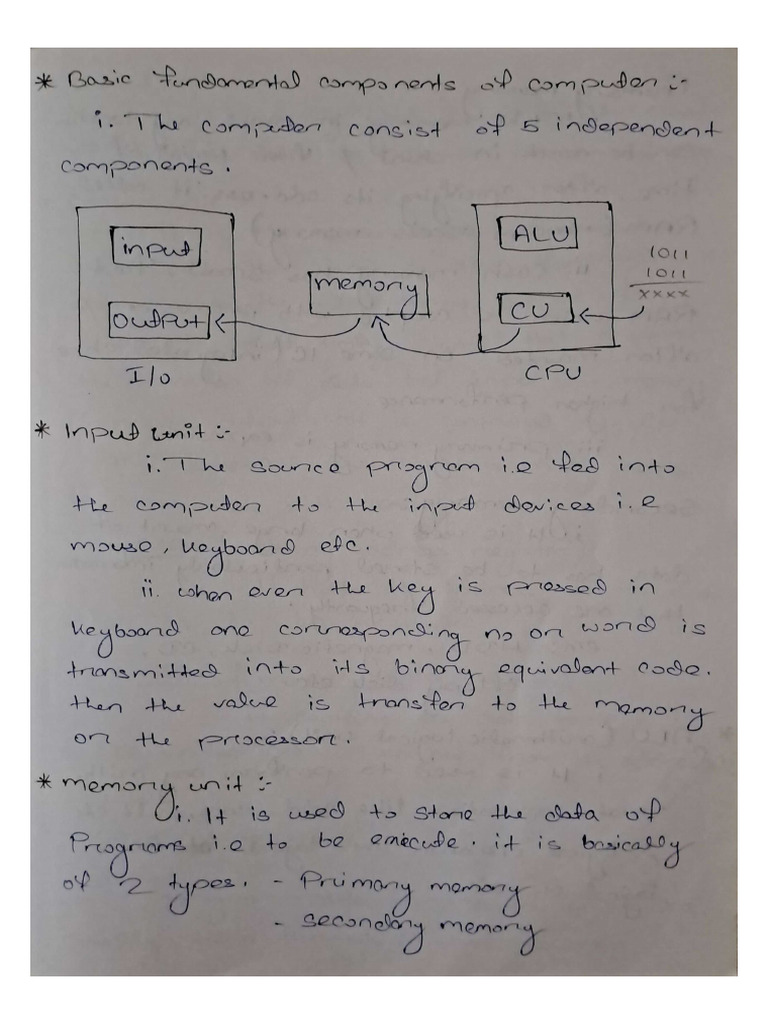 * Basic fundamental components of computer :-
i. The computer consist of 5 independent
components.
input
output
I/o
memory
ALU
CU
CPU
1011
1011
xxxx
* Input unit :-
i. The source program i.e fed into
the computer to the input devices i.e
mouse, keyboard etc.
ii. when ever the key is pressed in
keyboard one corresponding no or word is
transmitted into its binary equivalent code.
then the value is transfer to the memory
or the processor.
* memory unit :-
i. It is used to store the data of
Programs i.e to be execute. it is basically
of 2 types. - Primary memory
- secondary memory